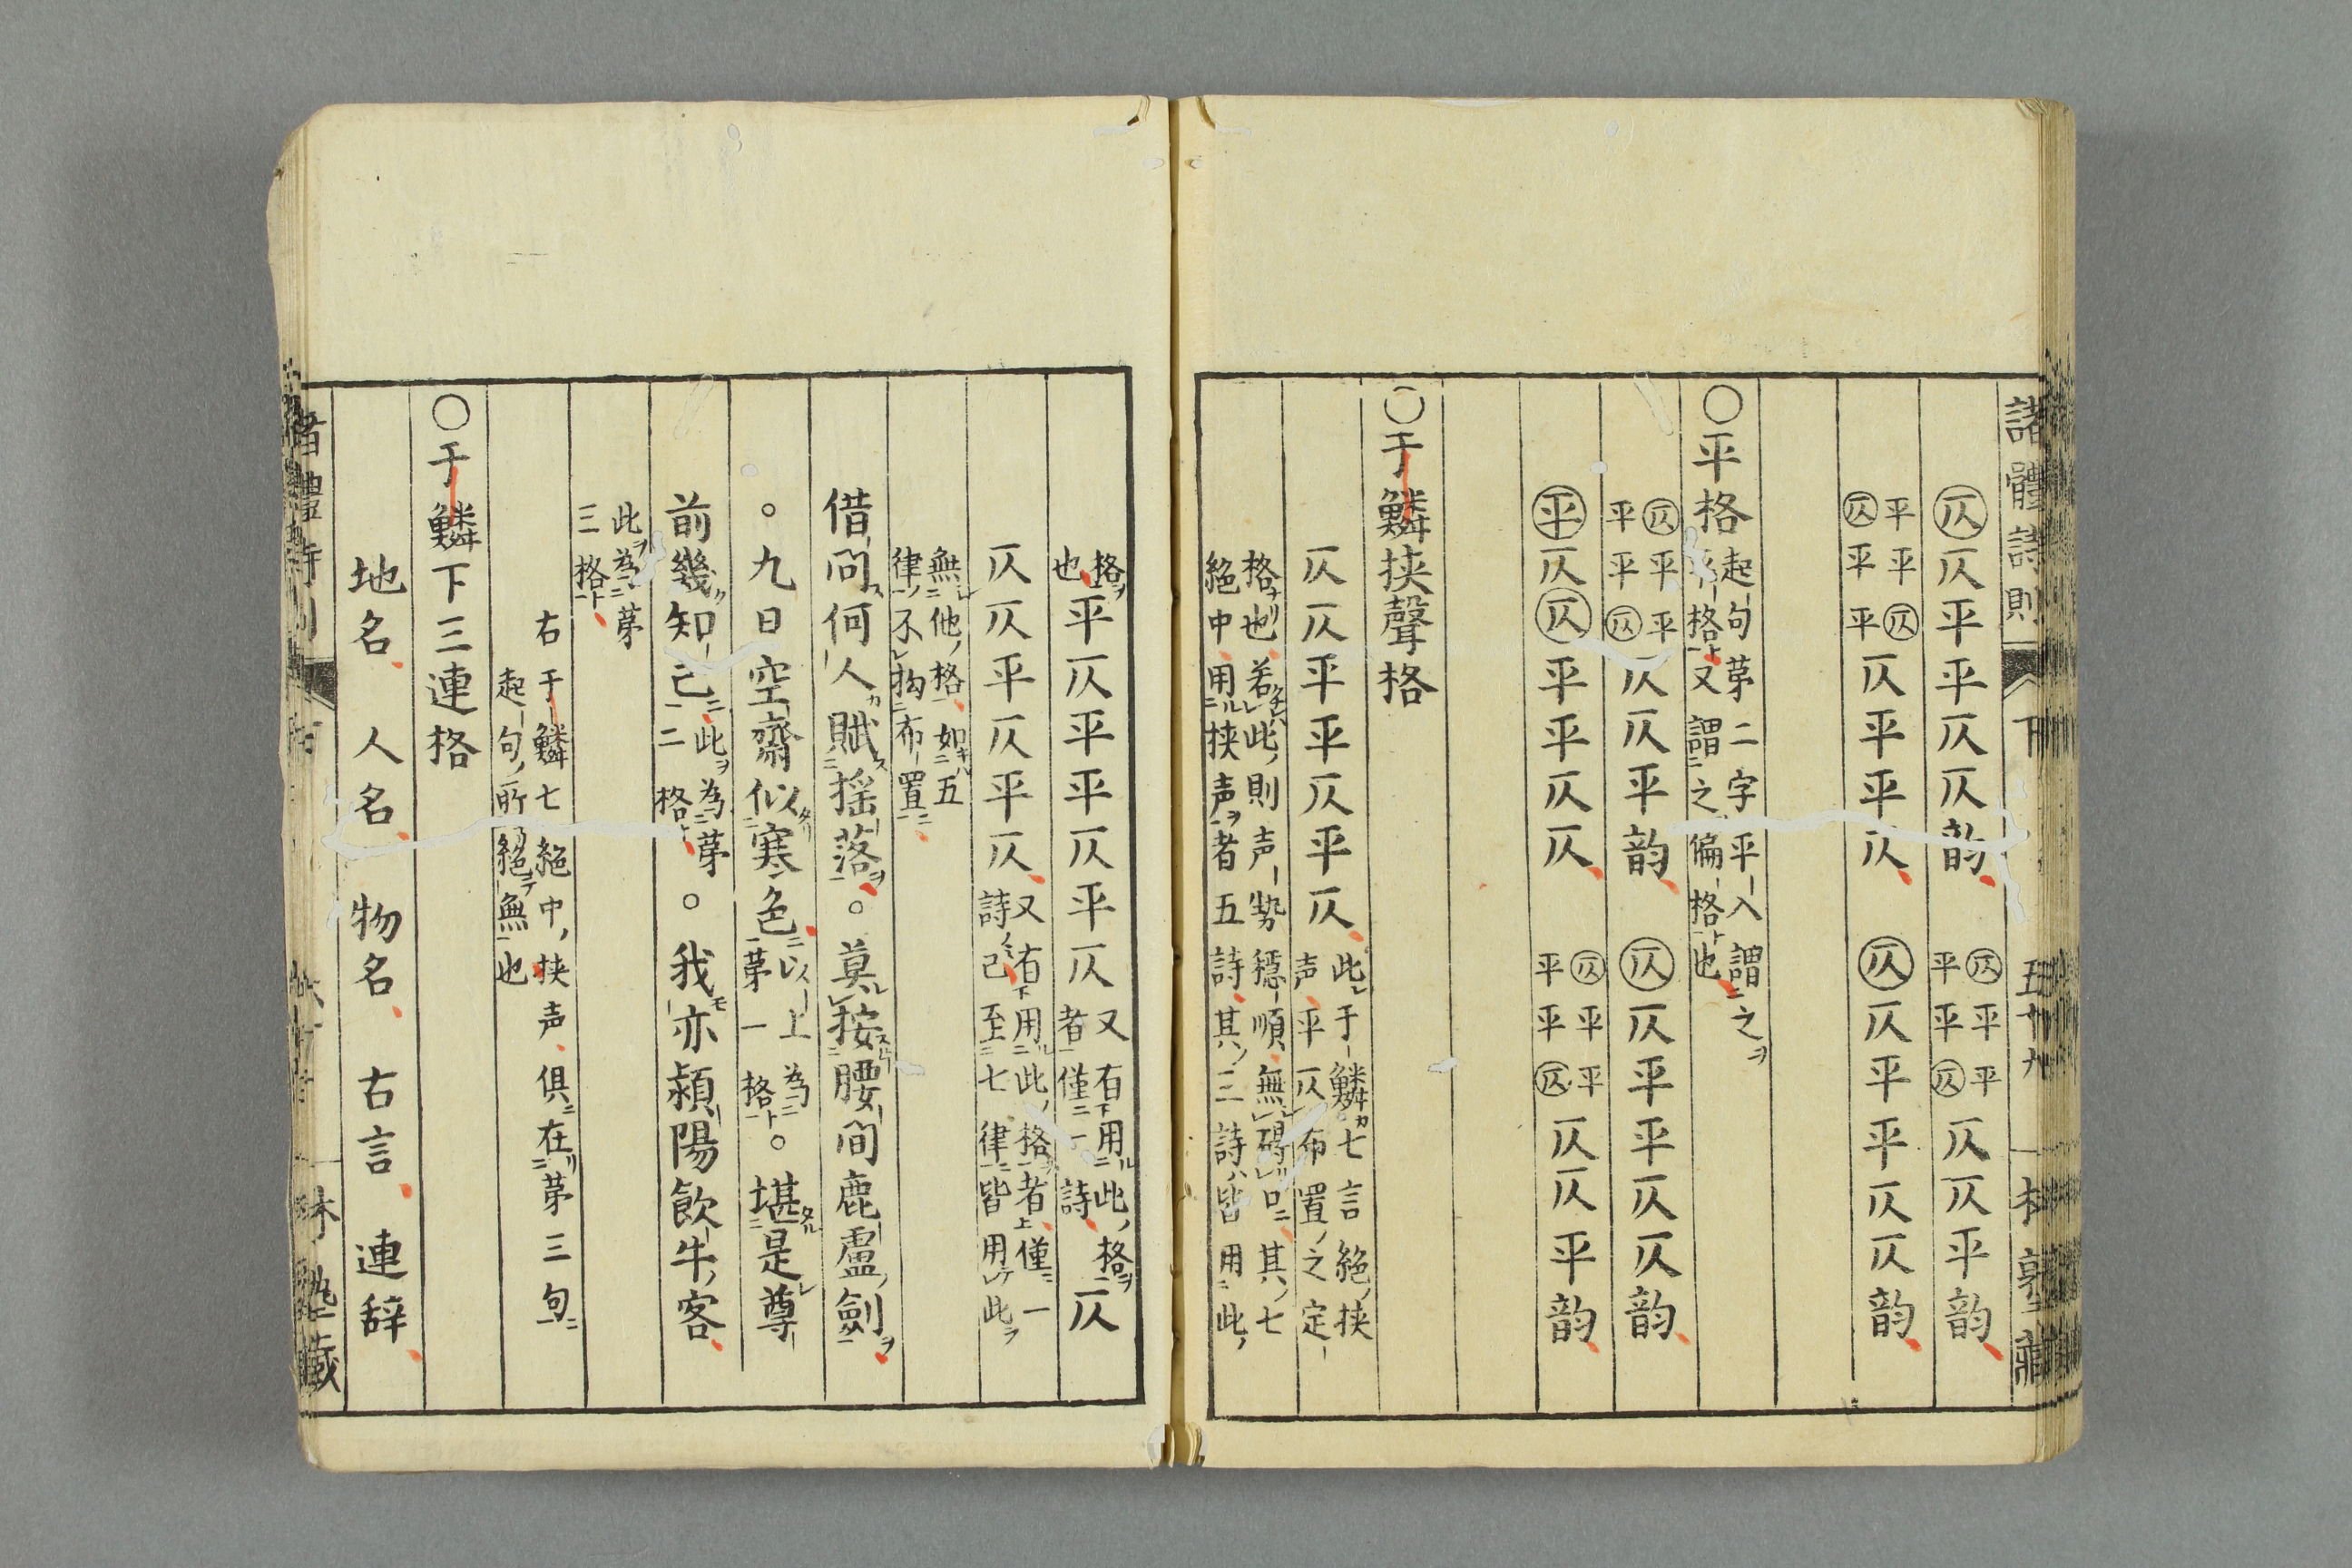 諸體詩則 下 五十九 一本塾藏
㊀仄平平仄仄韵 平㊀平平平㊀仄仄平韵
平㊀平平㊀平仄平平仄 ㊀仄平平仄仄韵
○平格 起句第二字平入謂之平格又謂之偏格也
㊀平平平平㊀仄仄平韵 ㊀仄平平仄仄韵
㊀仄㊀平平仄仄 ㊀平平平平㊀仄仄平韵
○于鱗挾聲格
仄仄平平仄平仄 此于鱗七言絕挾声平仄布置之定
格也若此則声勢穩順無碍口其七絕中用挾声者五詩其三詩皆用此
格也平仄平平仄平仄 又有用此格者僅一詩 仄
仄仄平仄平仄 又有用此格者僅一詩已至七律皆用此
無他格如五律不拘布置
借問何人賦揺落。莫按腰間鹿盧劍
。九日空齋似寒色 以上為第一格。堪是尊
前幾知己 此為第二格。我亦潁陽飲牛客
此為第三格
右于鱗七絕中挾声俱在第三句起句所絕無也
○于鱗下三連格
地名 人名 物名 古言 連辞